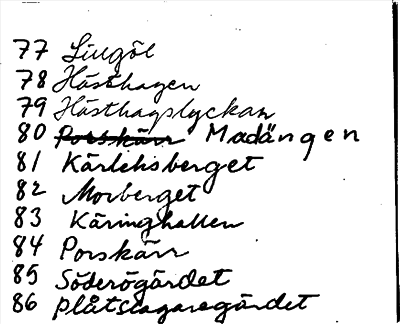 77 Lingöl
78 Hästhagen
79 Hästhagslyckan
80 Porskärr Madängen
81 Kärleksberget
82 Morberget
83 Käringhallen
84 Porskärr
85 Söderögärdet
86 Plåtslagaregärdet